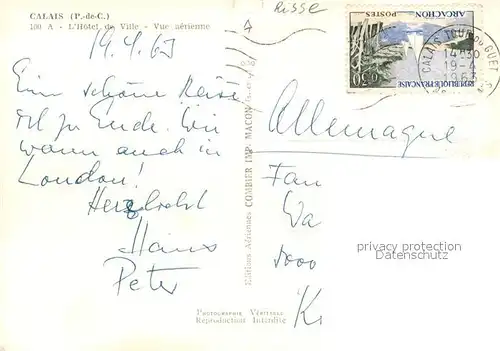 CALAIS (P.-de-C.)
100 A - L'Hôtel de Ville - Vue aérienne
19.4.63
Eine schöne Reise
ist zu Ende. Wir
waren auch in
London!
Herzlichst
Hans
Peter
Editions Aériennes COMBIER IMP. MACON
Photographie Véritable
Reproduction Interdite
Risse
RÉPUBLIQUE FRANÇAISE
POSTES
ARCACHON
0,30
CALAIS TOUR DU GUET
14H30
19-4
1963
Allemagne
Fam
privacy protection
Datenschutz